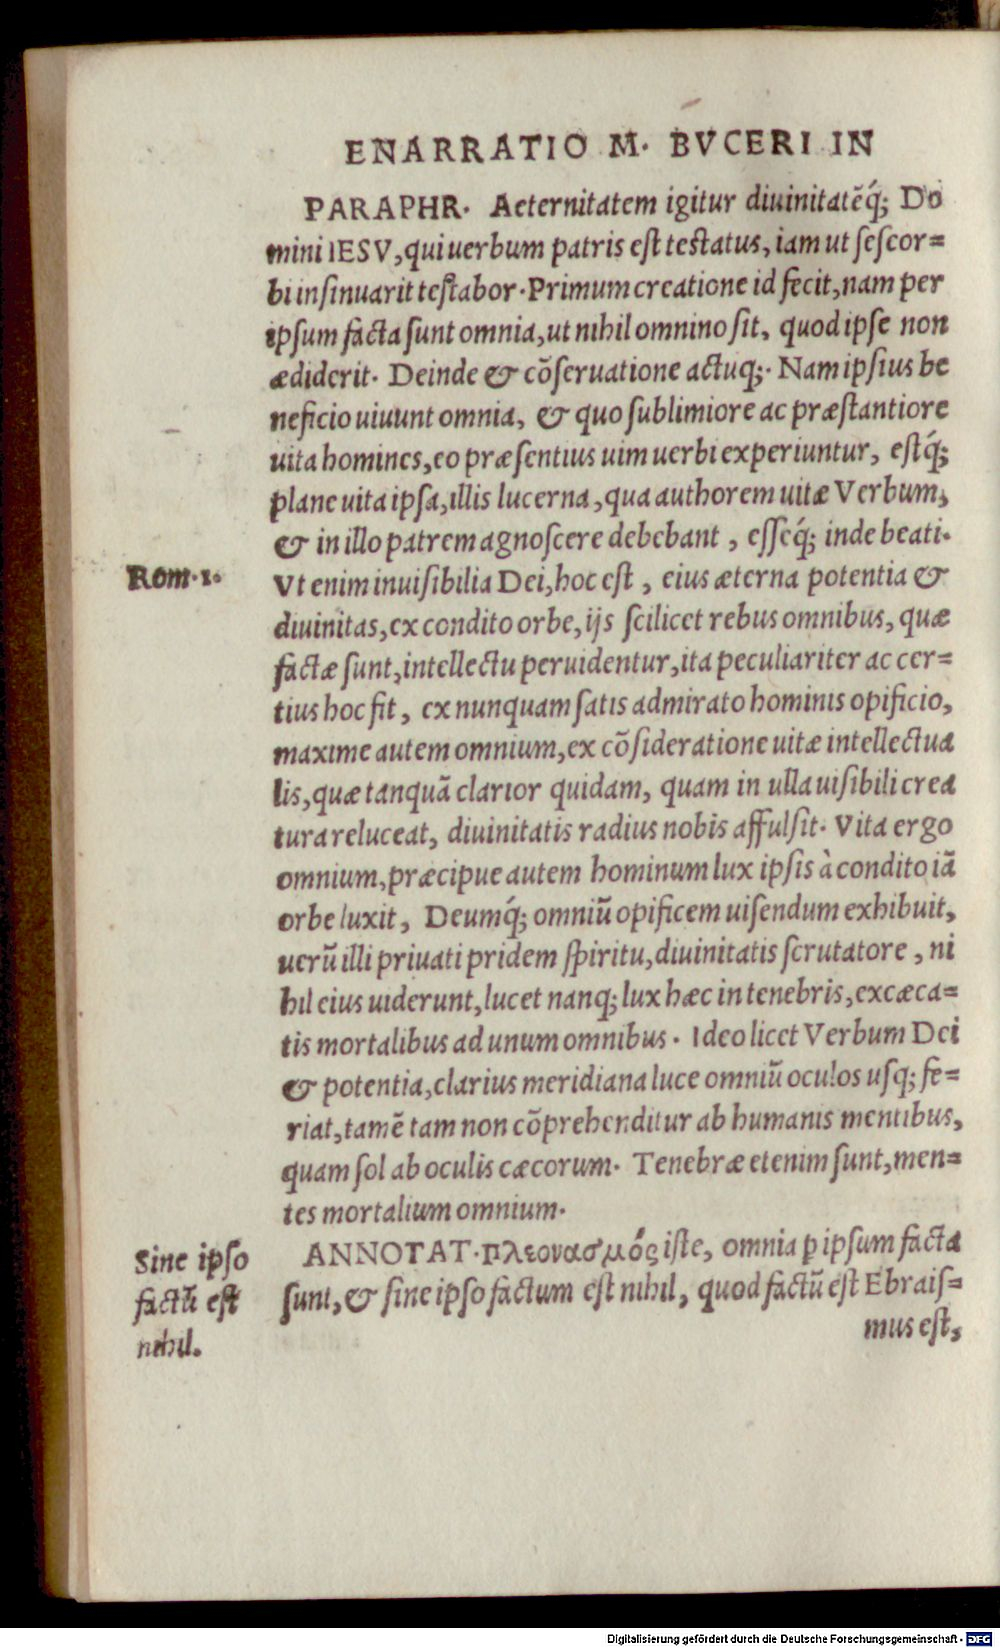 ENARRATIO M. BVCERI IN
PARAPHR. Aeternitatem igitur diuinitatẽq́; Do
mini IESV, qui uerbum patris est testatus, iam ut sese or=
bi insinuarit testabor. Primum creatione id fecit, nam per
ipsum facta sunt omnia, ut nihil omnino sit, quod ipse non
ædiderit. Deinde & cõseruatione actuq;. Nam ipsius be
neficio uiuunt omnia, & quo sublimiore ac præstantiore
uita homines, eo præsentius uim uerbi experiuntur, estq́;
plane uita ipsa, illis lucerna, qua authorem uitæ Verbum,
& in illo patrem agnoscere debebant, esseq́; inde beati.
Rom. 1.
Vt enim inuisibilia Dei, hoc est, eius æterna potentia &
diuinitas, ex condito orbe, ijs scilicet rebus omnibus, quæ
factæ sunt, intellectu peruidentur, ita peculiariter ac cer=
tius hoc fit, ex nunquam satis admirato hominis opificio,
maxime autem omnium, ex cõsideratione uitæ intellectua
lis, quæ tanquã clarior quidam, quam in ulla uisibili crea
tura reluceat, diuinitatis radius nobis affulsit. Vita ergo
omnium, præcipue autem hominum lux ipsis à condito iã
orbe luxit, Deumq́; omniũ opificem uisendum exhibuit,
uerũ illi priuati pridem spiritu, diuinitatis scrutatore, ni
hil eius uiderunt, lucet nanq; lux hæc in tenebris, excæca=
tis mortalibus ad unum omnibus. Ideo licet Verbum Dei
& potentia, clarius meridiana luce omniũ oculos usq; fe=
riat, tamẽ tam non cõprehenditur ab humanis mentibus,
quam sol ab oculis cæcorum. Tenebræ etenim sunt, men=
tes mortalium omnium.
Sine ipso
factũ est
nihil.
ANNOTAT. πλεονασμός iste, omnia ꝑ ipsum facta
sunt, & sine ipso factum est nihil, quod factũ est Ebrais=
mus est,
Digitalisierung gefördert durch die Deutsche Forschungsgemeinschaft - DFG